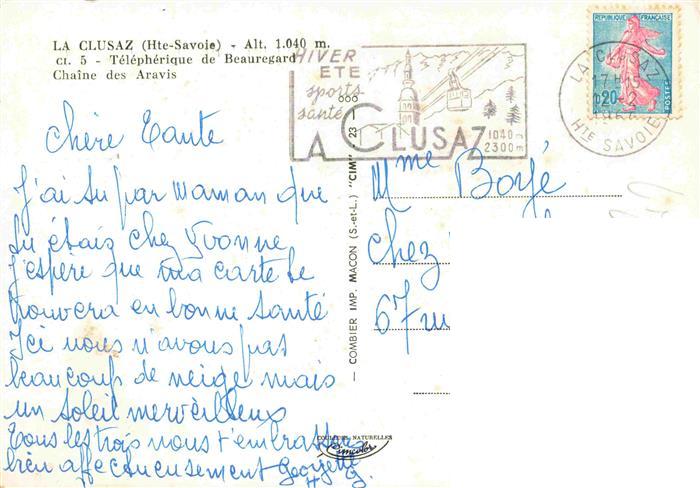 LA CLUSAZ (Hte-Savoie) - Alt. 1.040 m.
CI. 5 - Téléphérique de Beauregard
Chaîne des Aravis
HIVER
ETE
sports
santé
LA CLUSAZ
1040m
2300m
REPUBLIQUE FRANÇAISE
0,20
POSTES
LA CLUSAZ
17H15
20-2
HTE SAVOIE
Chère Tante
J'ai su par maman que
tu étais chez Yvonne
J'espère que ma carte te
trouvera en bonne santé
Ici nous n'avons pas
beaucoup de neige mais
un soleil merveilleux
Tous les trois nous t'embrassons
bien affectueusement Georgette
COMBIER IMP. MACON (S.-et-L.) "CIM" - 23 - I
COULEURS NATURELLES
Cimcolor
Mme Borjé
chez
67 rue